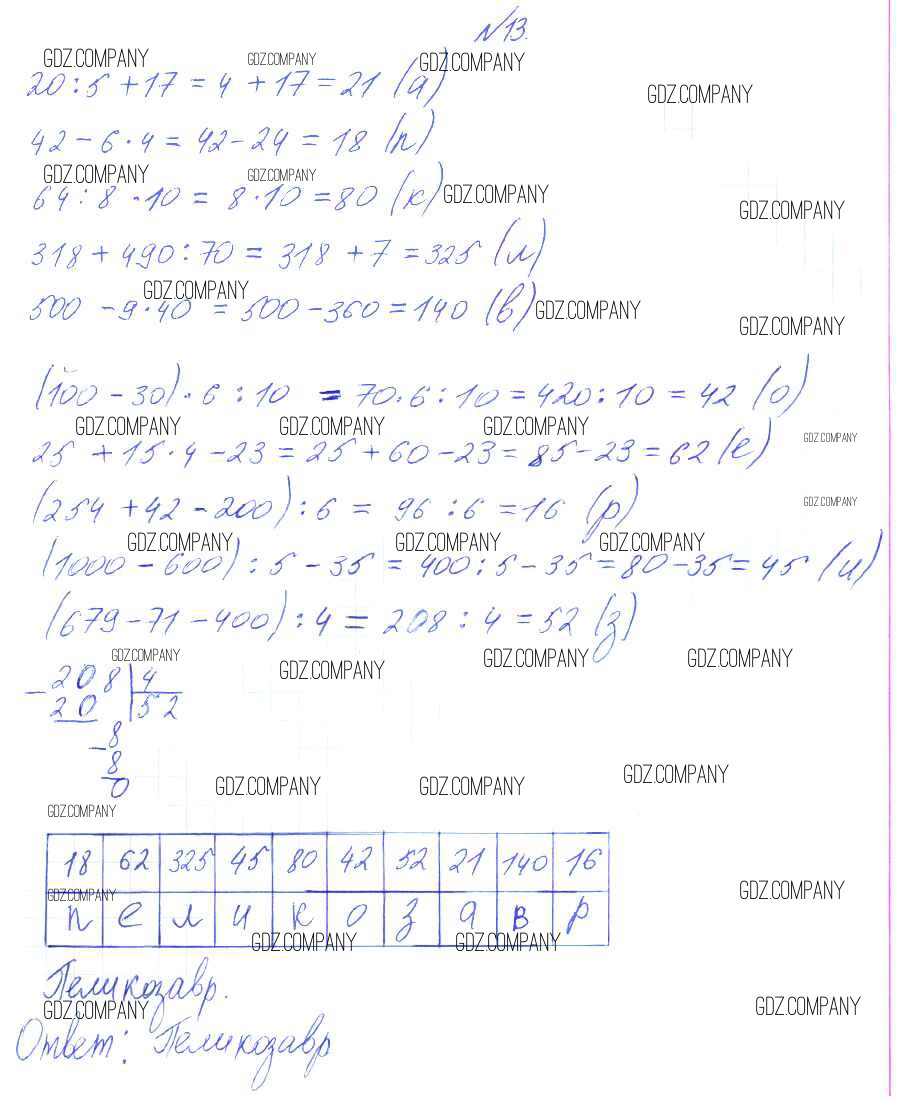 №13.
GDZ.COMPANY GDZ.COMPANY GDZ.COMPANY
20:5+17=4+17=21 (а)
GDZ.COMPANY
42-6·4=42-24=18 (п)
GDZ.COMPANY GDZ.COMPANY
64:8·10=8·10=80 (к) GDZ.COMPANY
GDZ.COMPANY
318+490:70=318+7=325 (л)
GDZ.COMPANY
500-9·40=500-360=140 (в) GDZ.COMPANY
GDZ.COMPANY
(100-30)·6:10=70·6:10=420:10=42 (о)
GDZ.COMPANY GDZ.COMPANY GDZ.COMPANY GDZ.COMPANY
25+15·4-23=25+60-23=85-23=62 (е)
(254+42-200):6=96:6=16 (р) GDZ.COMPANY
GDZ.COMPANY GDZ.COMPANY GDZ.COMPANY
(1000-600):5-35=400:5-35=80-35=45 (и)
(679-71-400):4=208:4=52 (з)
GDZ.COMPANY GDZ.COMPANY GDZ.COMPANY GDZ.COMPANY
-208 4
20 52
-8
8
0
GDZ.COMPANY GDZ.COMPANY GDZ.COMPANY
GDZ.COMPANY
18 62 325 45 80 42 52 21 140 16
GDZ.COMPANY GDZ.COMPANY
п е л и к о з а в р
GDZ.COMPANY GDZ.COMPANY
Пеликозавр.
GDZ.COMPANY GDZ.COMPANY
Ответ: Пеликозавр